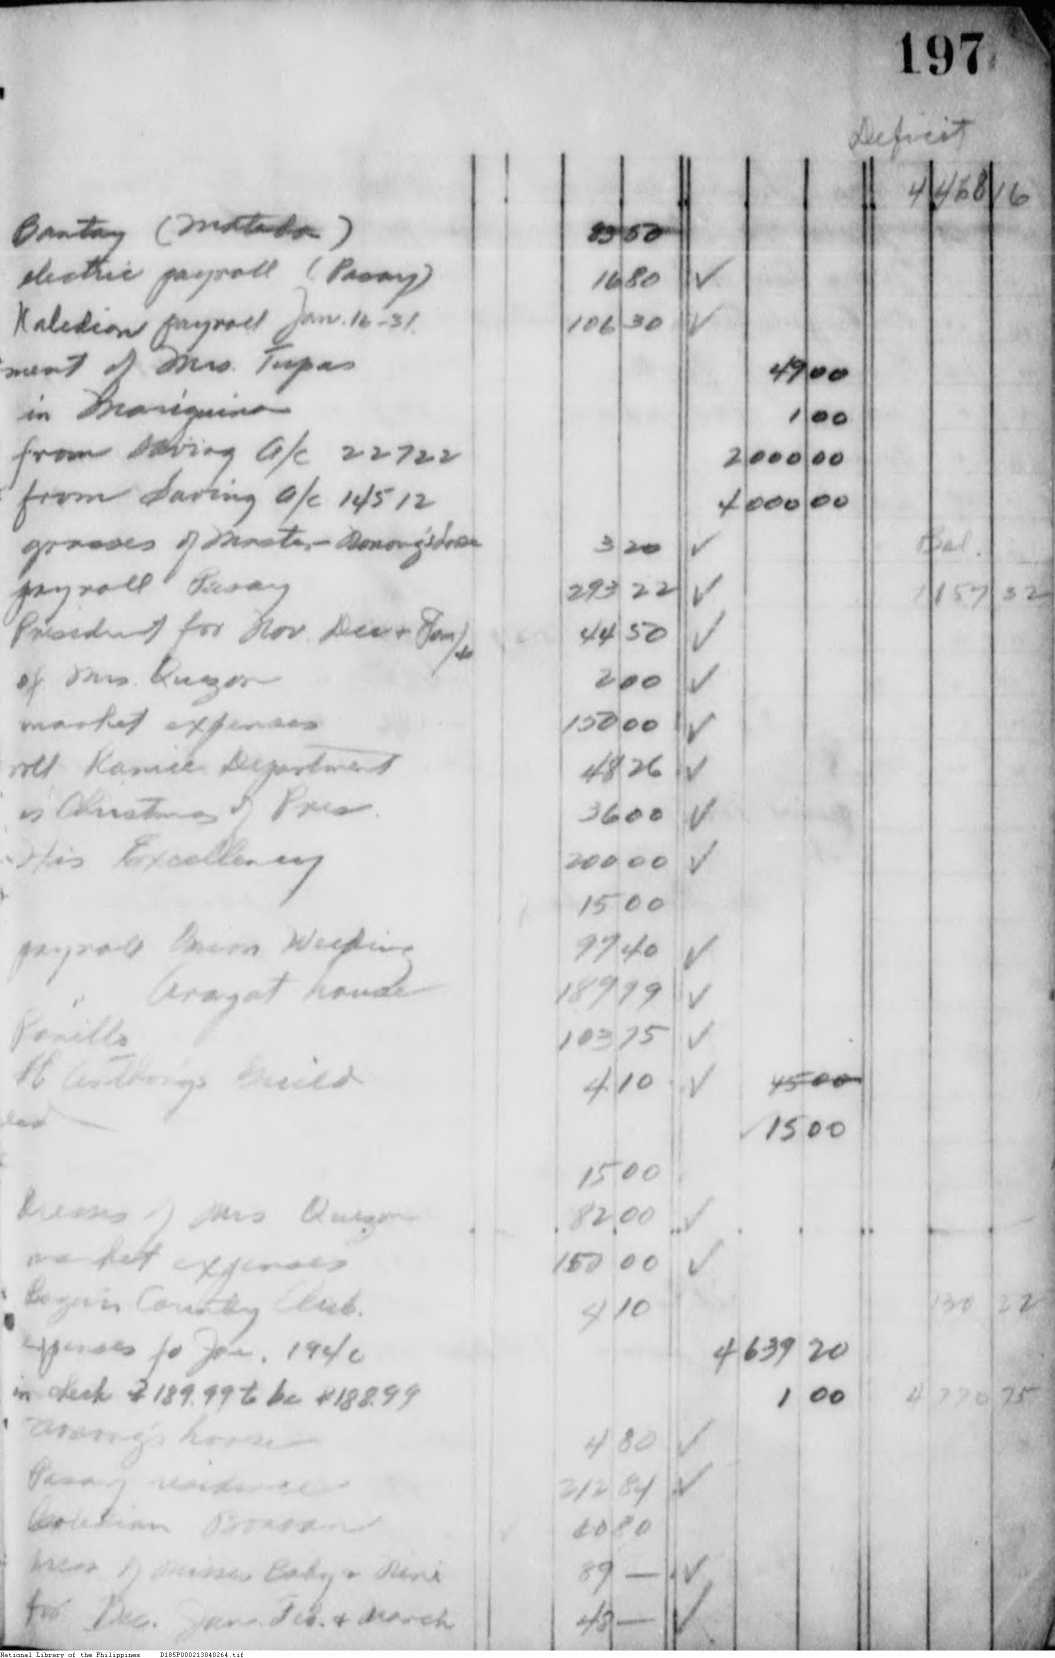 197
Deficit
4 468 16
Bantay (Matador) 83 50
electric payroll (Pasay) 16 80 ✓
payroll Jan. 16-31. 106 30 ✓
ment of Mrs. Tupas 49 00
in Mariquina 1 00
from Saving a/c 22722 2000 00
from Saving a/c 14512 4000 00
grasses of 3 20 ✓ Bal.
payroll Pasay 293 22 ✓ 157 32
President for Nov. Dec + Jan/40 44 50 ✓
of Mrs. Quezon 2 00 ✓
market expenses 150 00 ✓
roll Ramie Department 48 26 ✓
is Christmas of Pres. 36 00 ✓
His Excellency 200 00 ✓
15 00
payroll 97 40 ✓
" Arayat house 189 99 ✓
103 75 ✓
St Anthony's Guild 4 10 ✓ 45 00
15 00
15 00
Dresses of Mrs Quezon 82 00 ✓
market expenses 150 00 ✓
Country Club. 4 10 130 22
expenses fo Jan. 1940 4 639 20
in check ₱189.99 to be ₱188.99 1 00 4 770 75
house 4 80 ✓
Pasay residence 212 84 ✓
80
dress of Misses Baby + Nini 89 — ✓
for Dec. Jan. Feb. + March 48 — ✓
National Library of the Philippines D185P000213040264.tif